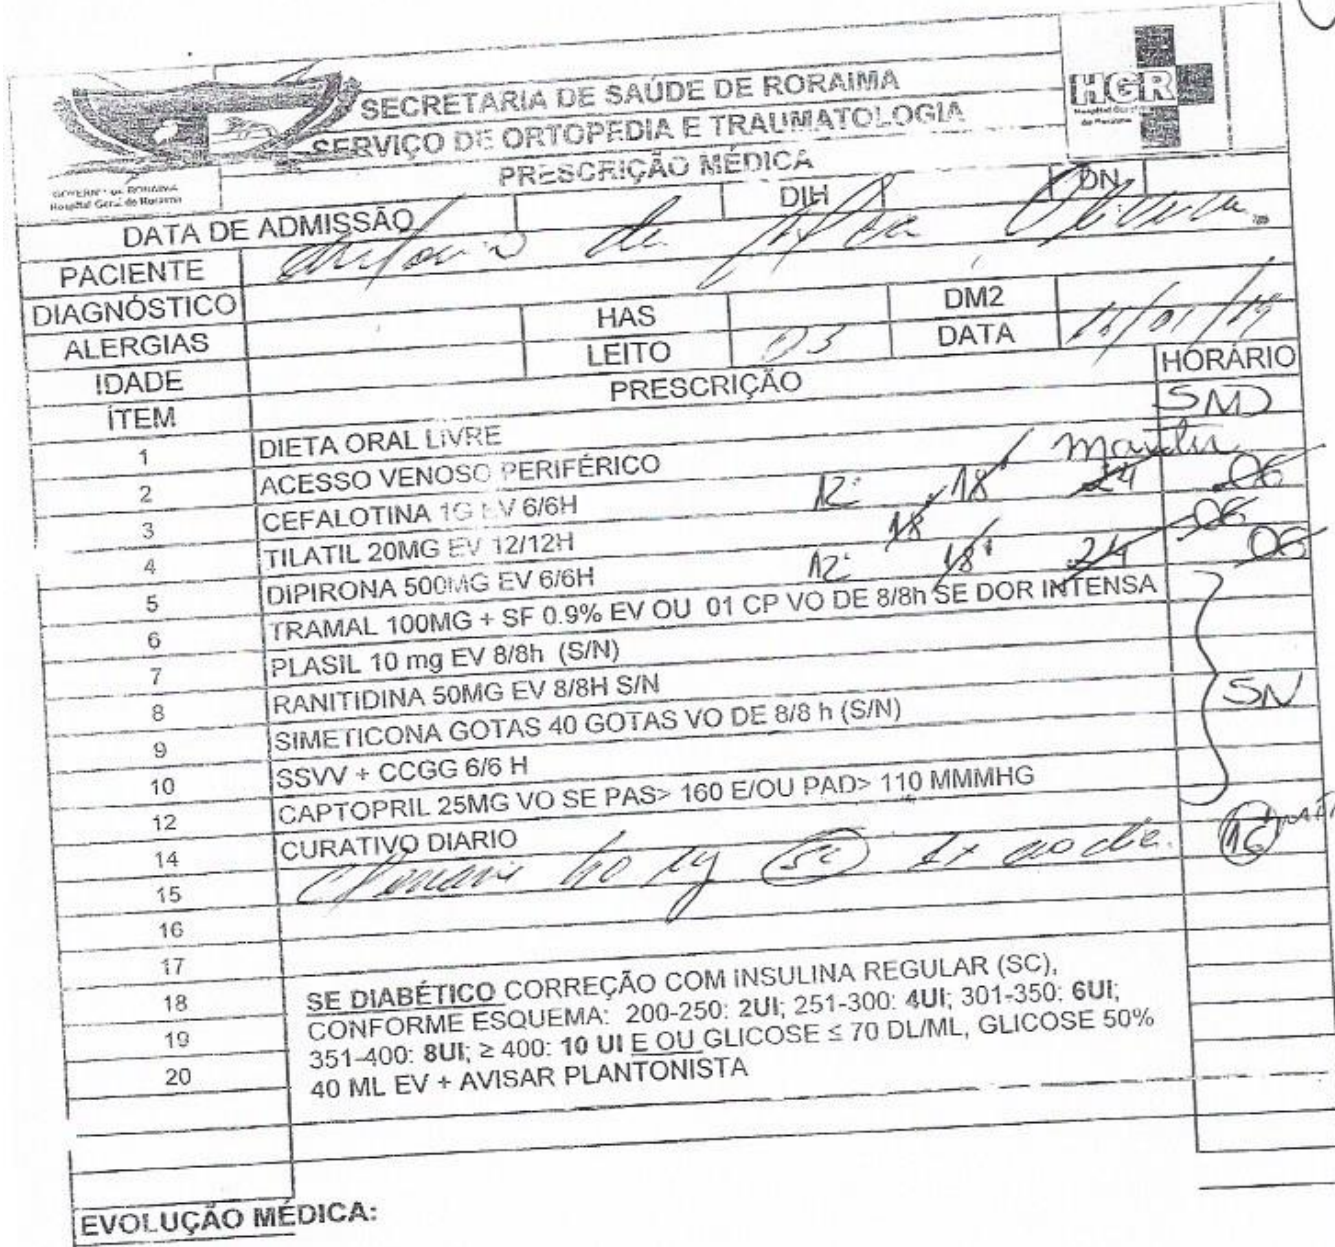 SECRETARIA DE SAÚDE DE RORAIMA
HGR
SERVIÇO DE ORTOPEDIA E TRAUMATOLOGIA
PRESCRIÇÃO MÉDICA
GOVERNO DE RORAIMA
Hospital Geral de Roraima
DATA DE ADMISSÃO DIH DN
PACIENTE Antonio de Oliveira
DIAGNÓSTICO
ALERGIAS HAS DM2
IDADE LEITO 03 DATA
ÍTEM PRESCRIÇÃO HORÁRIO
1 DIETA ORAL LIVRE SND
2 ACESSO VENOSO PERIFÉRICO manter
3 CEFALOTINA 1G EV 6/6H 12 18 24 06
4 TILATIL 20MG EV 12/12H 18 06
5 DIPIRONA 500MG EV 6/6H 12 18 24 06
6 TRAMAL 100MG + SF 0.9% EV OU 01 CP VO DE 8/8h SE DOR INTENSA
7 PLASIL 10 mg EV 8/8h (S/N)
8 RANITIDINA 50MG EV 8/8H S/N SN
9 SIMETICONA GOTAS 40 GOTAS VO DE 8/8 h (S/N)
10 SSVV + CCGG 6/6 H
12 CAPTOPRIL 25MG VO SE PAS> 160 E/OU PAD> 110 MMMHG
14 CURATIVO DIARIO
15 SC 1x ao dia 16
16
17
18 SE DIABÉTICO CORREÇÃO COM INSULINA REGULAR (SC),
19 CONFORME ESQUEMA: 200-250: 2UI; 251-300: 4UI; 301-350: 6UI;
20 351-400: 8UI; ≥ 400: 10 UI E OU GLICOSE ≤ 70 DL/ML, GLICOSE 50%
40 ML EV + AVISAR PLANTONISTA
EVOLUÇÃO MÉDICA: